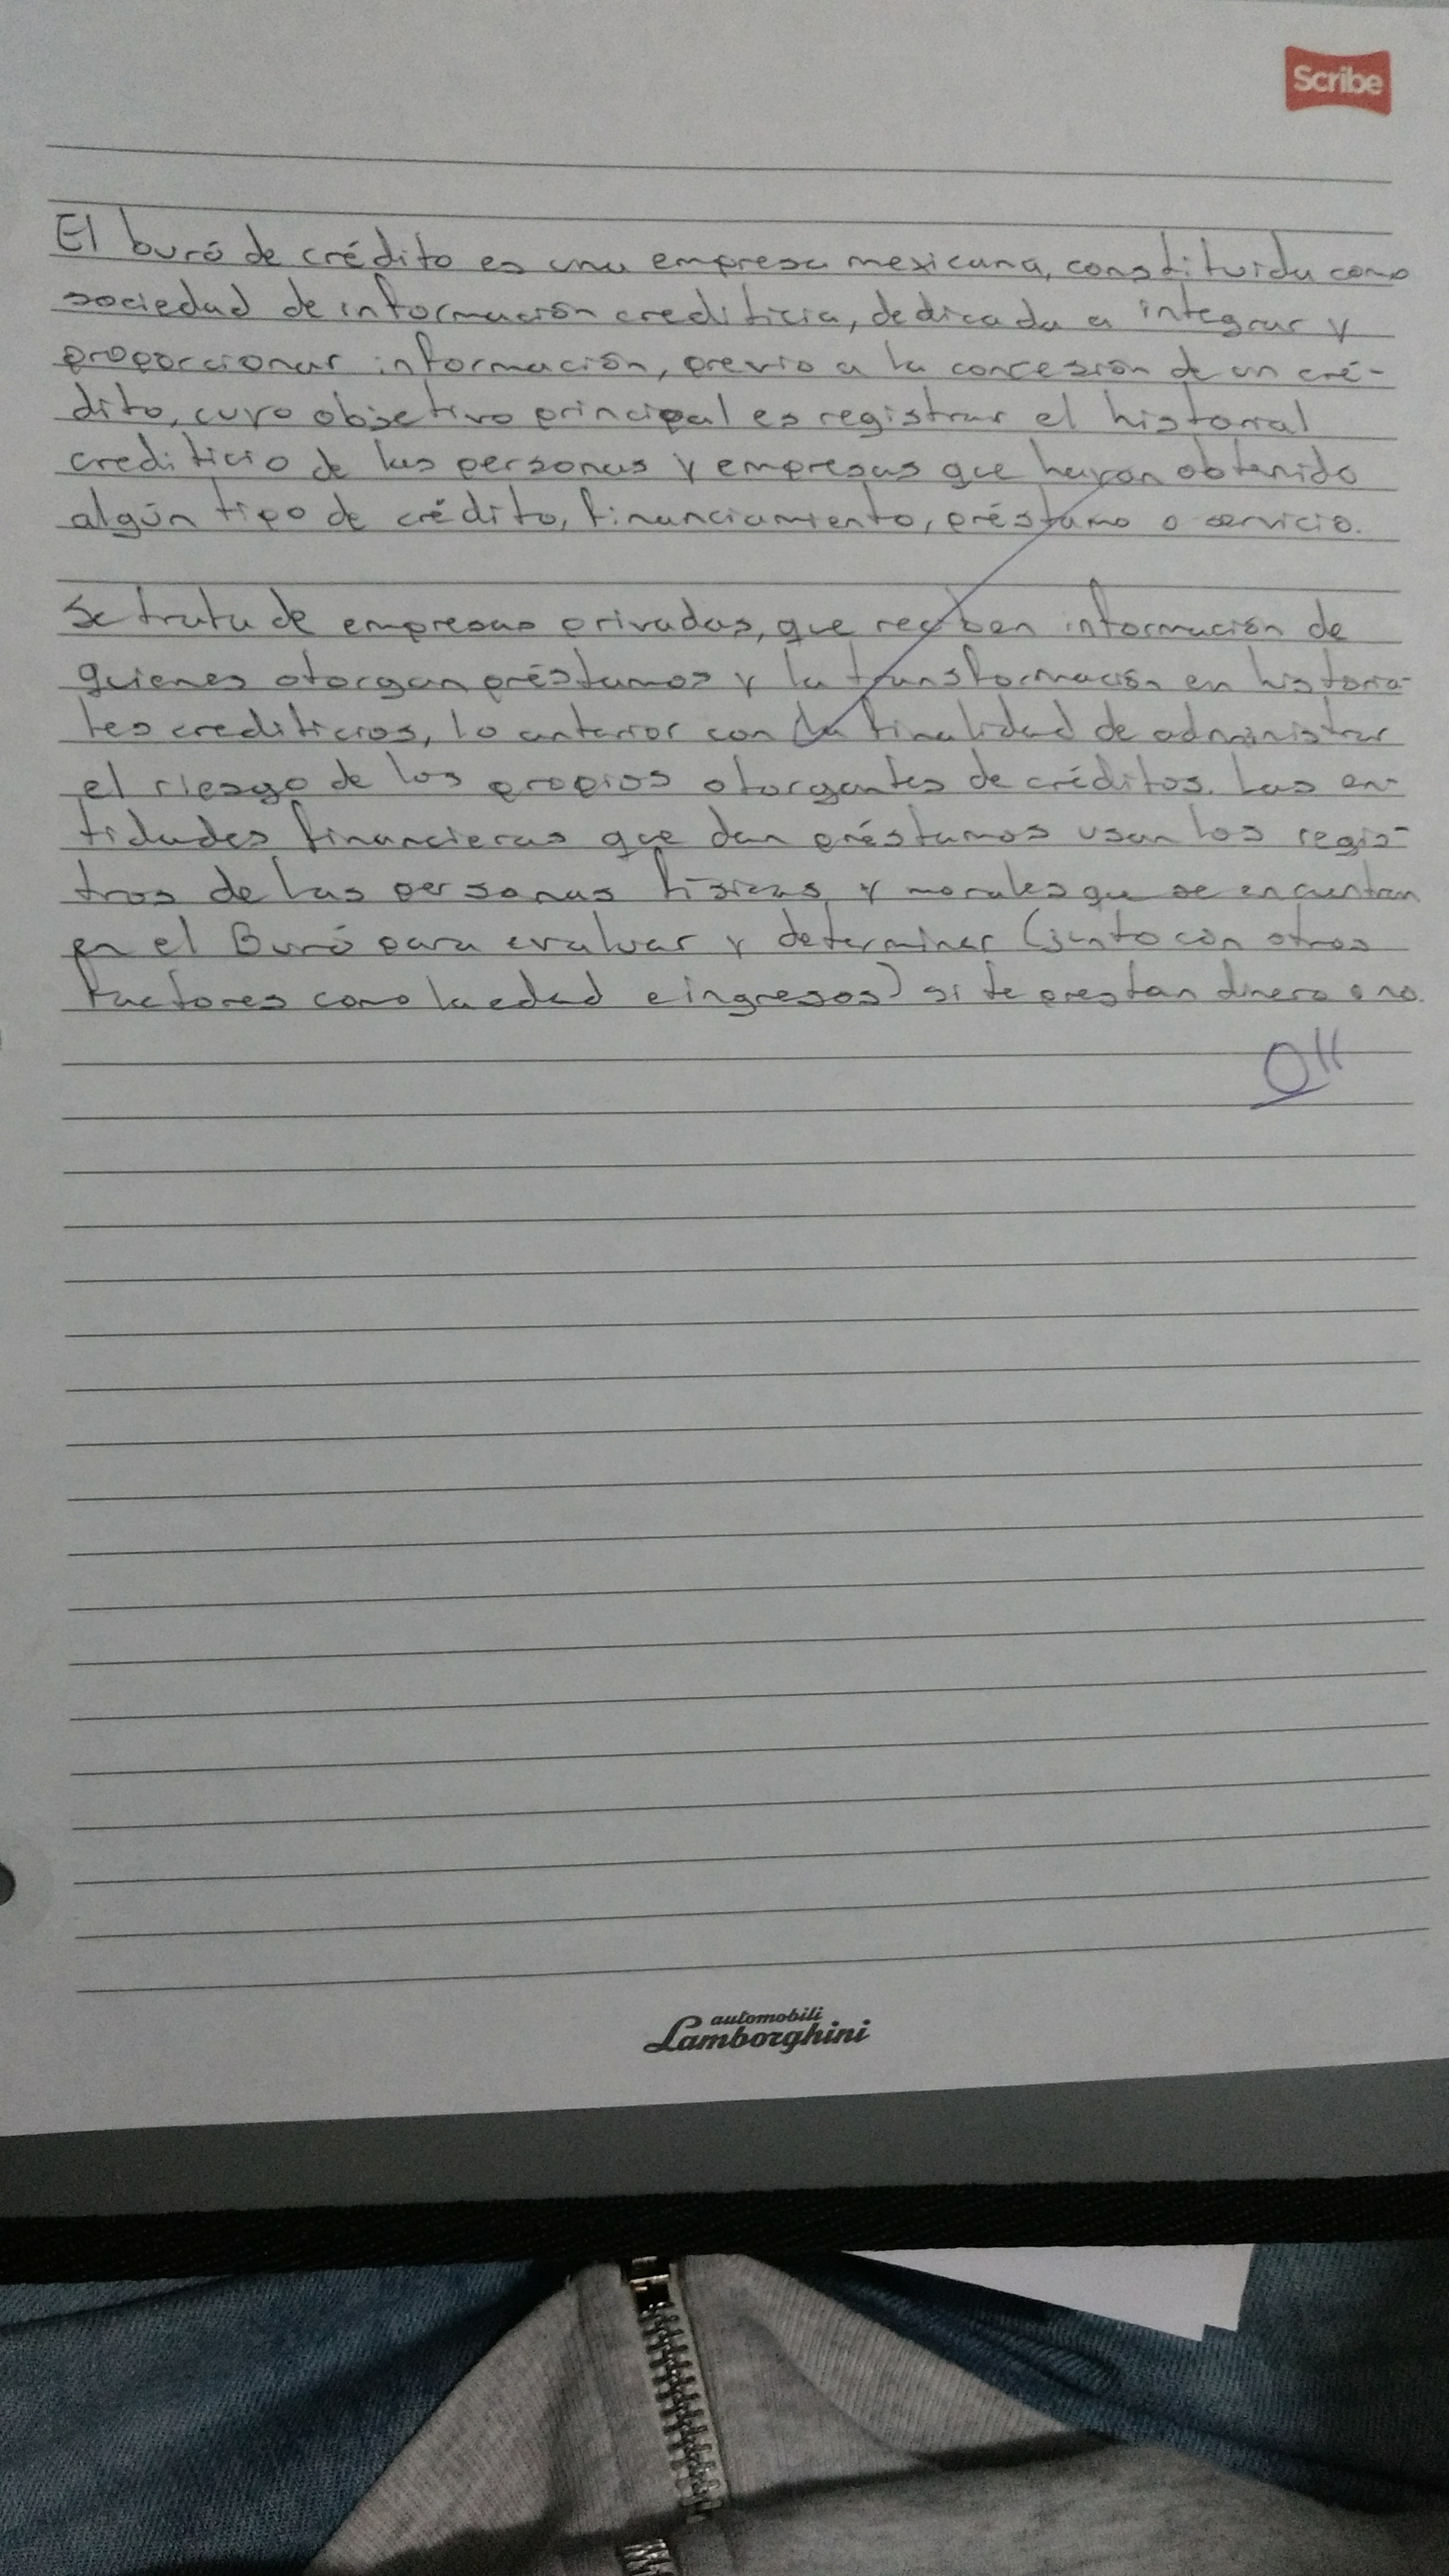 Scribe
El buró de crédito es una empresa mexicana, constituida como
sociedad de información crediticia, dedicada a integrar y
proporcionar información, previo a la concesión de un cré-
dito, cuyo objetivo principal es registrar el historial
crediticio de las personas y empresas que hayan obtenido
algún tipo de crédito, financiamiento, préstamo o servicio.
Se trata de empresas privadas, que reciben información de
quienes otorgan préstamos y la transformación en historia-
les crediticios, lo anterior con la finalidad de administrar
el riesgo de los propios otorgantes de créditos. Las en-
tidades financieras que dan préstamos usan los regis-
tros de las personas físicas y morales que se encuentran
en el Buró para evaluar y determinar (junto con otros
factores como la edad e ingresos) si te prestan dinero o no.
automobili
Lamborghini